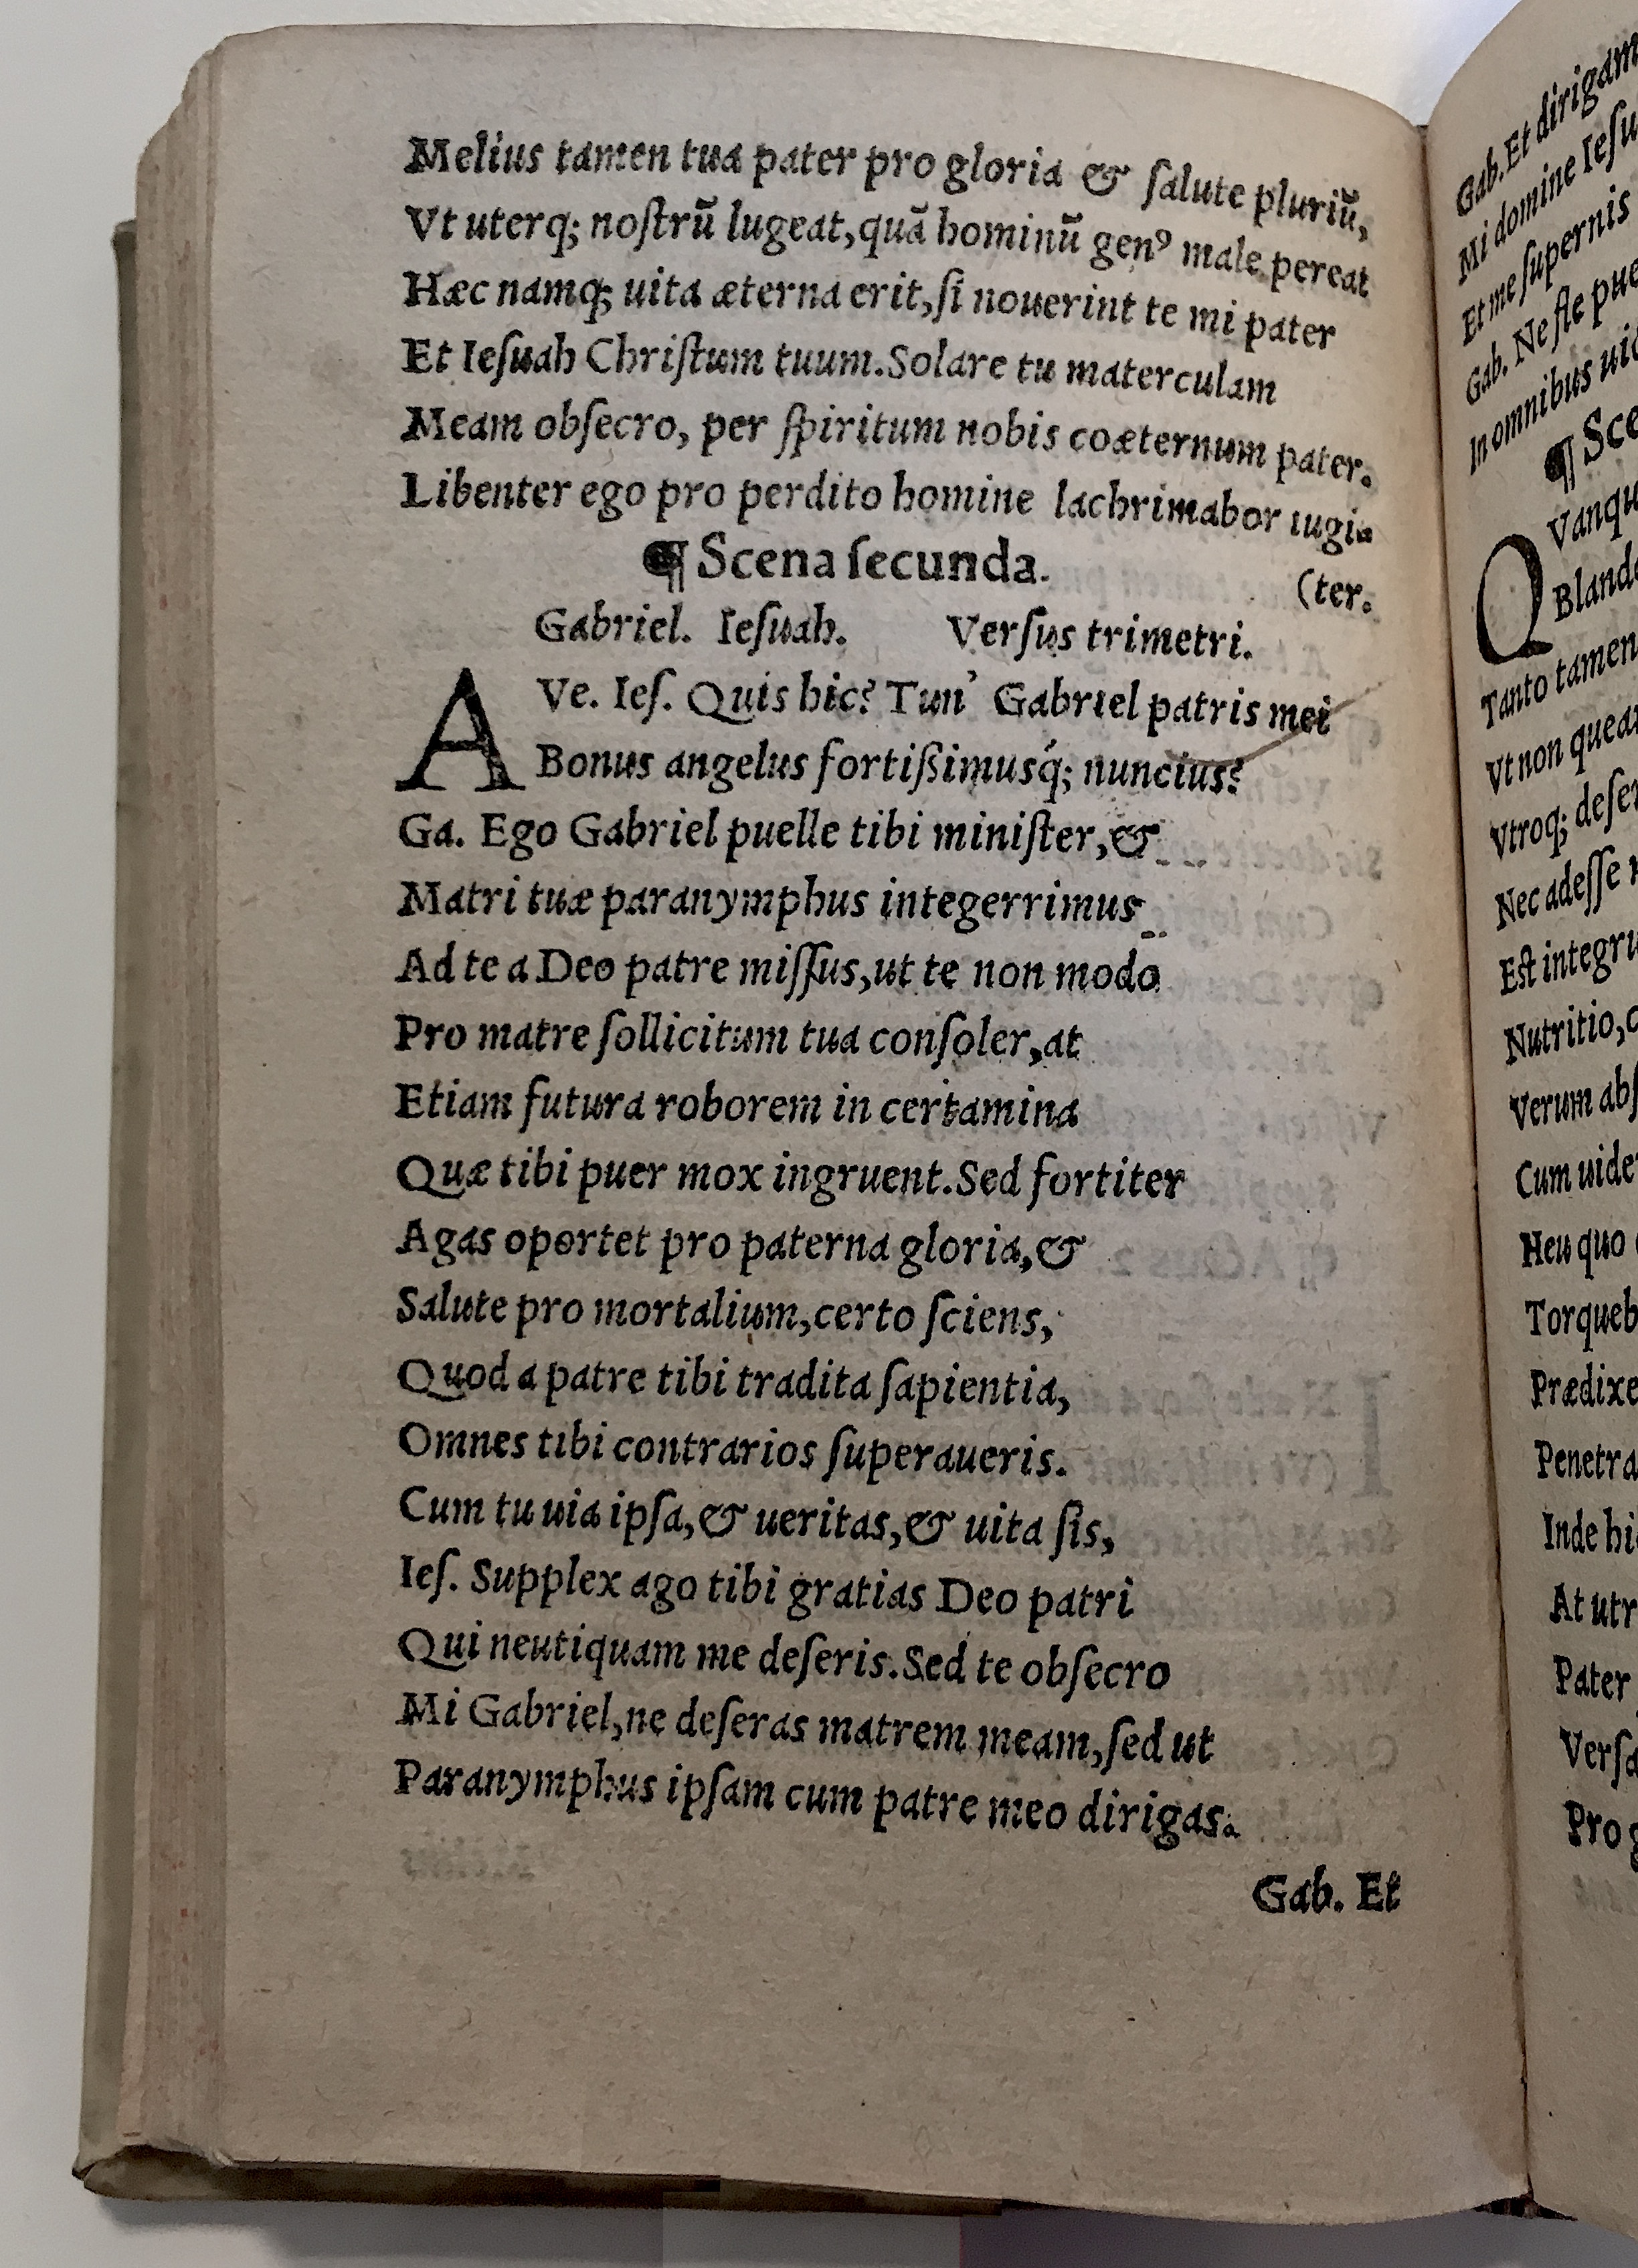 Melius tamen tua pater pro gloria & ſalute pluriũ,
Vt uterq; noſtrũ lugeat, quã hominũ genꝰ male pereat
Hæc namq; uita æterna erit, ſi nouerint te mi pater
Et Ieſuah Chriſtum tuum. Solare tu materculam
Meam obſecro, per ſpiritum nobis coæternum pater.
Libenter ego pro perdito homine lachrimabor iugi-
¶ Scena ſecunda. (ter.
Gabriel. Ieſuah. Verſus trimetri.
AVe. Ieſ. Quis hic? Tun' Gabriel patris mei
Bonus angelus fortiſsimusq́; nuncius?
Ga. Ego Gabriel puelle tibi miniſter, &
Matri tuæ paranymphus integerrimus
Ad te a Deo patre miſſus, ut te non modo
Pro matre ſollicitum tua conſoler, at
Etiam futura roborem in certamina
Quæ tibi puer mox ingruent. Sed fortiter
Agas oportet pro paterna gloria, &
Salute pro mortalium, certo ſciens,
Quod a patre tibi tradita ſapientia,
Omnes tibi contrarios ſuperaueris.
Cum tu uia ipſa, & ueritas, & uita ſis,
Ieſ. Supplex ago tibi gratias Deo patri
Qui neutiquam me deſeris. Sed te obſecro
Mi Gabriel, ne deſeras matrem meam, ſed ut
Paranymphus ipſam cum patre meo dirigas.
Gab. Et
Gab. Et dirigam
Mi domine Ieſu
Et me ſupernis
Gab. Ne fle pue
In omnibus uic
¶ Sce
QVanqu
Bland
Tanto tamen
Vt non quea
Vtroq; deſer
Nec adeſſe
Eſt integru
Nutritio,
Verum abſ
Cum uide
Heu quo
Torqueb
Prædixe
Penetra
Inde hi
At utr
Pater
Verſa
Pro g